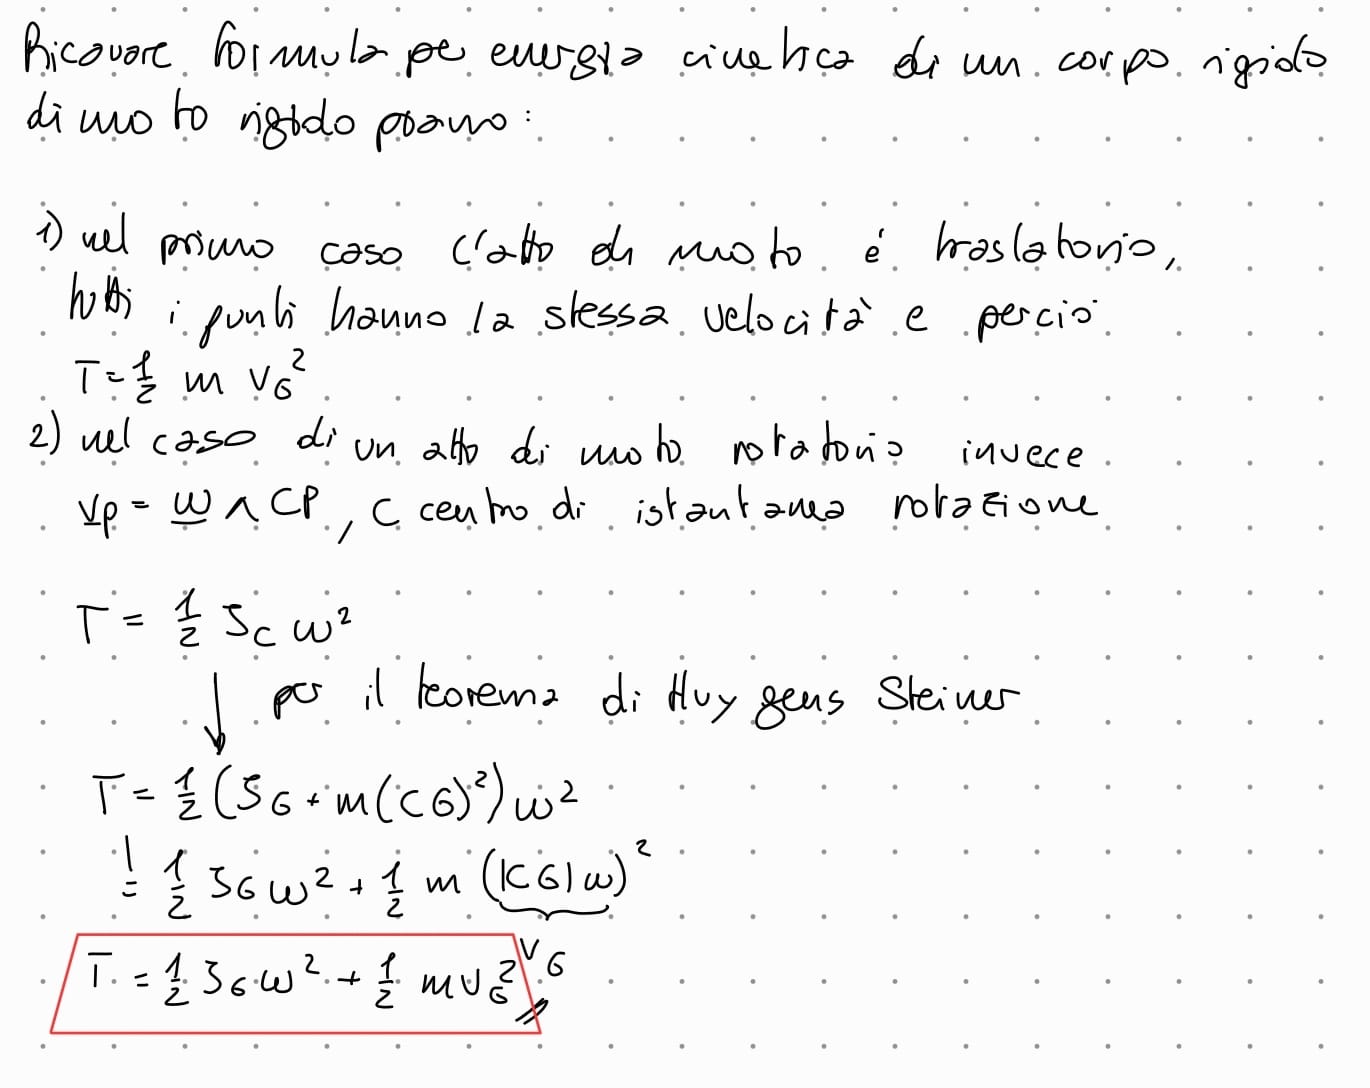 Ricavare formula pe energia cinetica di un corpo rigido
di moto rigido piano:
1) nel primo caso l'atto di moto é traslatorio,
tutti i punti hanno la stessa velocità e perciò
T = 1/2 m v_G^2
2) nel caso di un atto di moto rotatorio invece
v_P = ω ∧ CP, C centro di istantanea rotazione
T = 1/2 J_C ω^2
↓ per il teorema di Huygens Steiner
T = 1/2 (J_G + m(CG)^2) ω^2
! = 1/2 J_G ω^2 + 1/2 m (|CG| ω)^2
v_G
T = 1/2 J_G ω^2 + 1/2 m v_G^2